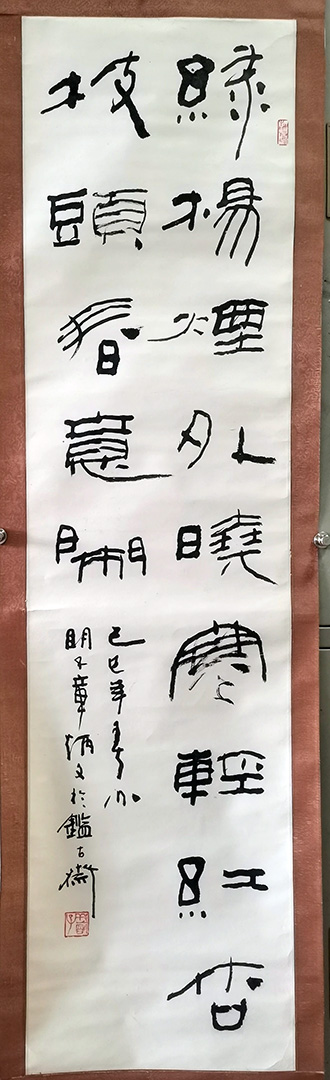 綠楊煙外曉寒輕紅杏
枝頭春意鬧
己巳年春
明 章炳文於鑑古齋